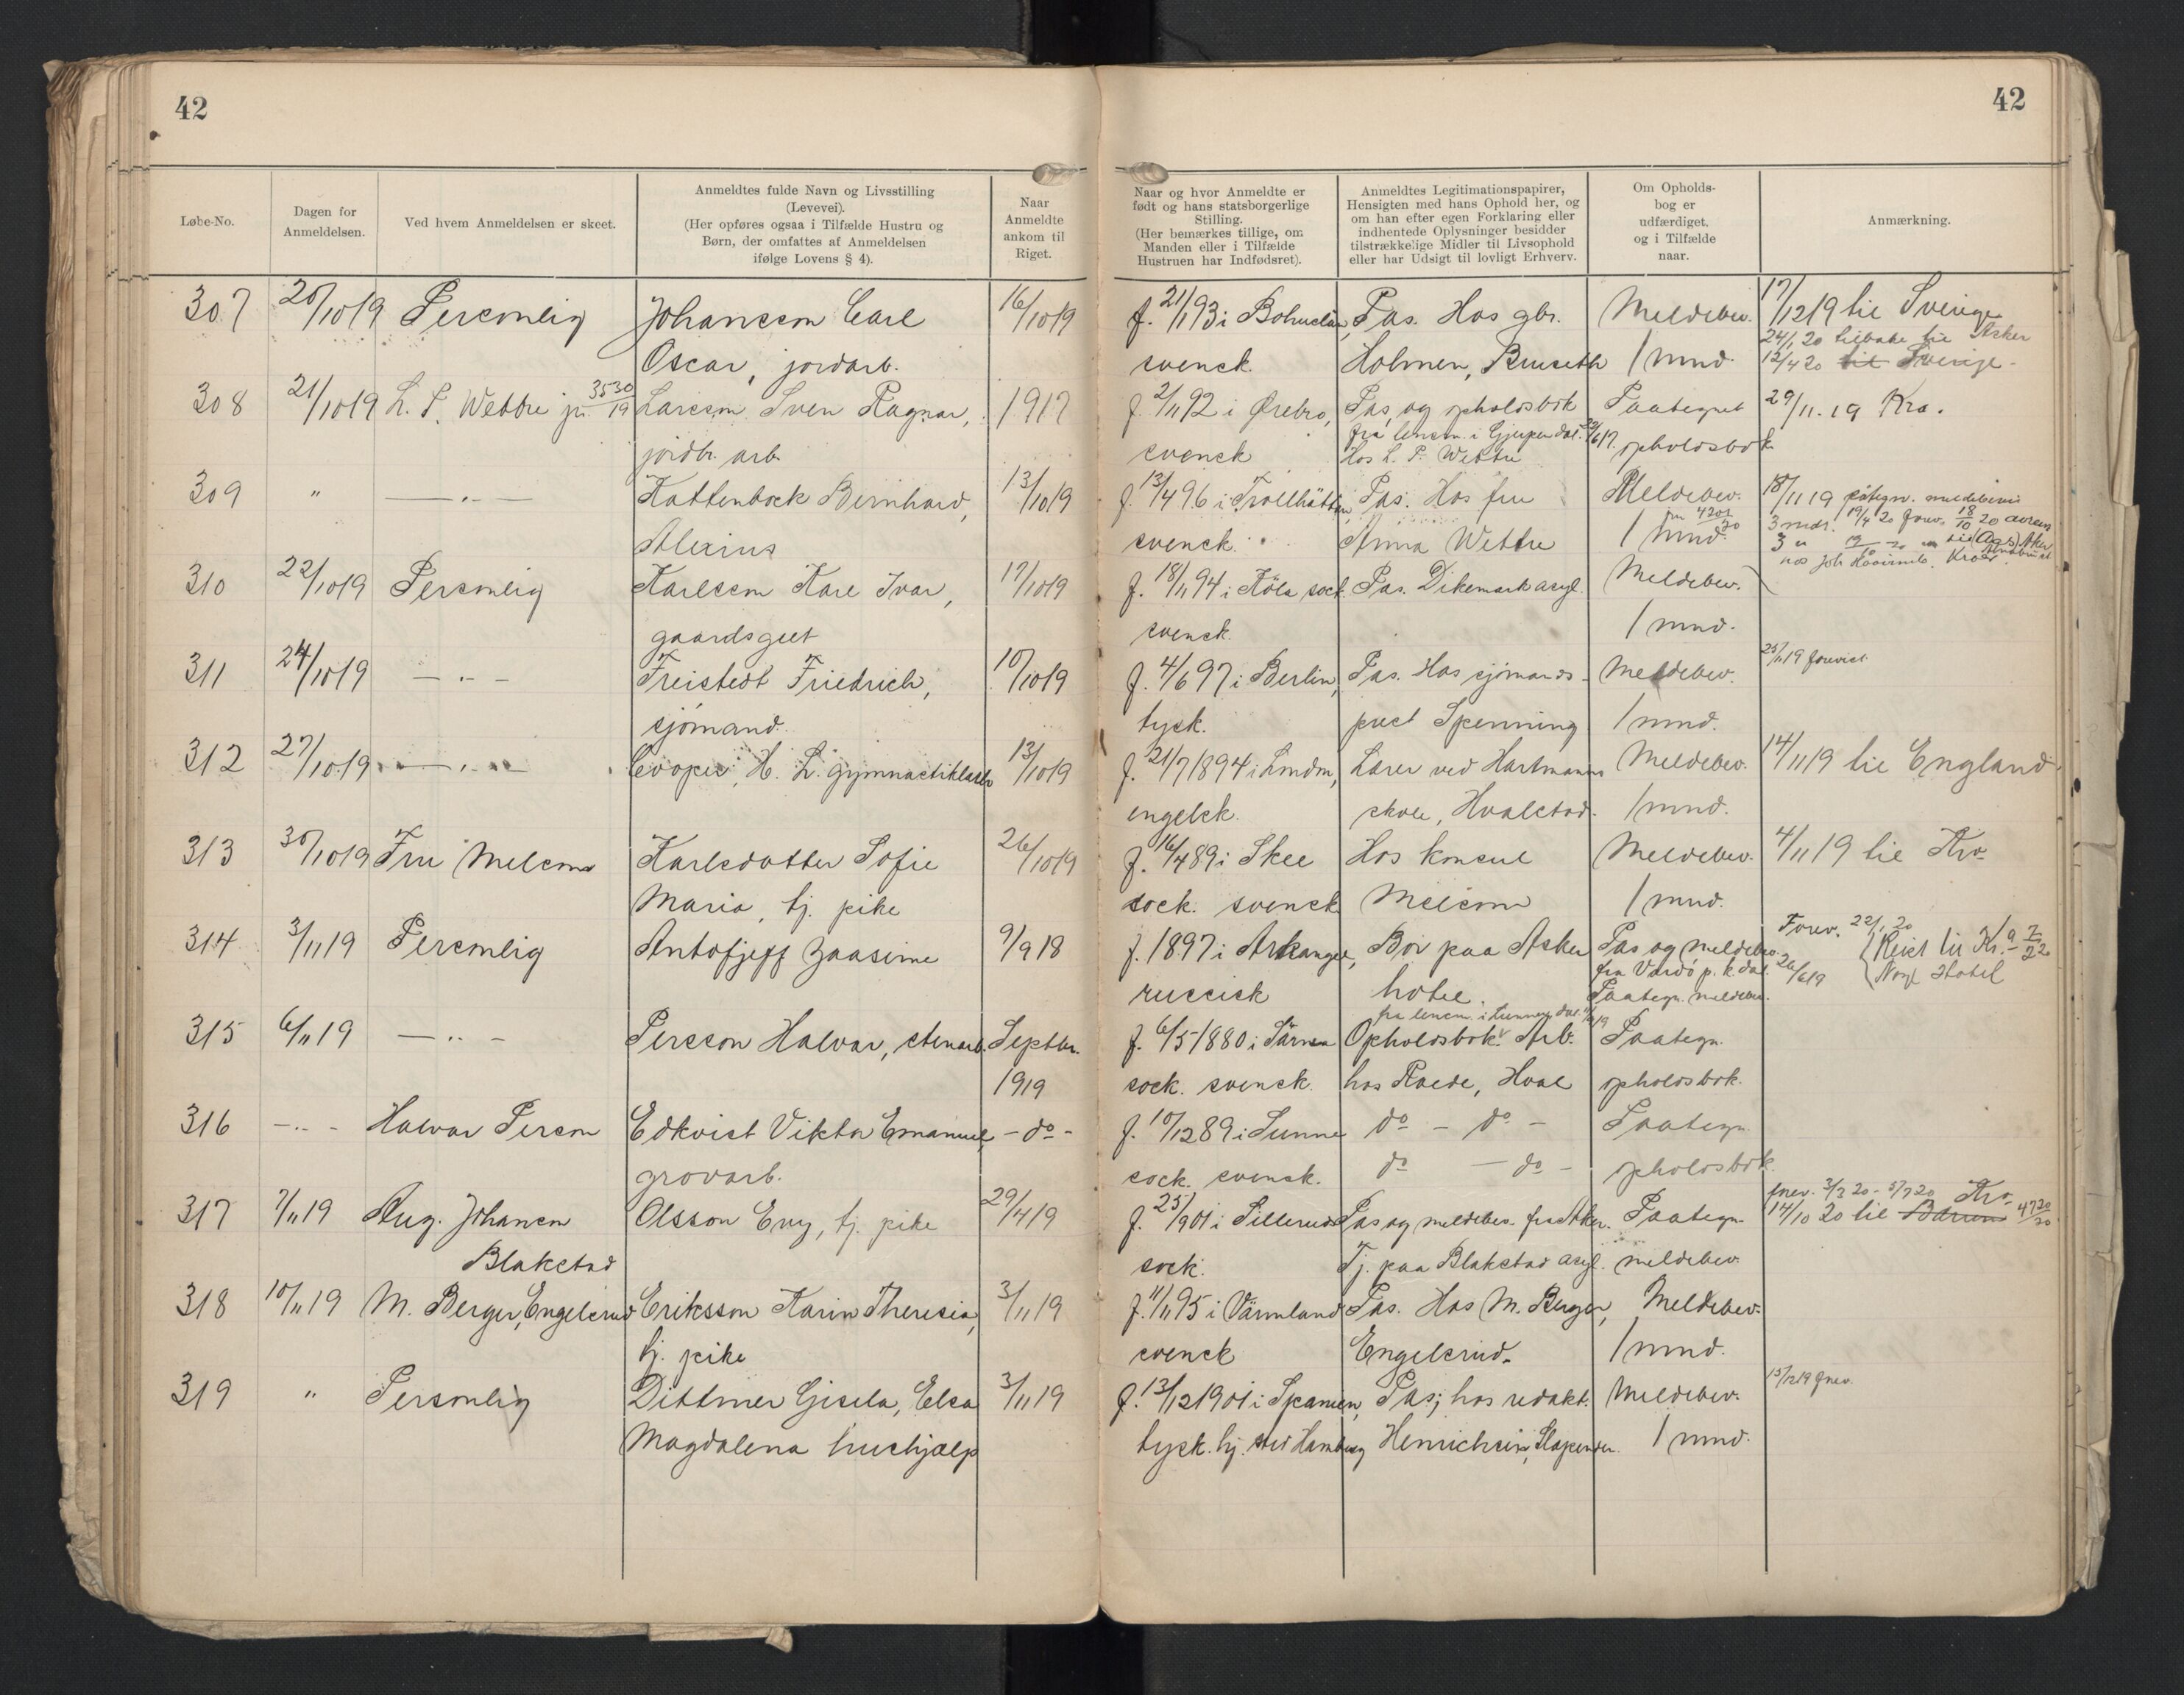 42
42
Løbe-No.
Dagen for
Anmeldelsen.
Ved hvem Anmeldelsen er skeet.
Anmeldtes fulde Navn og Livsstilling
(Levevei).
(Her opføres ogsaa i Tilfælde Hustru og
Børn, der omfattes af Anmeldelsen
ifølge Lovens § 4).
Naar
Anmeldte
ankom til
Riget.
Naar og hvor Anmeldte er
født og hans statsborgerlige
Stilling.
(Her bemærkes tillige, om
Manden eller i Tilfælde
Hustruen har Indfødsret).
Anmeldtes Legitimationspapirer,
Hensigten med hans Ophold her, og
om han efter egen Forklaring eller
indhentede Oplysninger besidder
tilstrækkelige Midler til Livsophold
eller har Udsigt til lovligt Erhverv.
Om Opholds-
bog er
udfærdiget,
og i Tilfælde
naar.
Anmærkning.
307 20/10 19 Personlig Johansson Carl 16/10 19 f. 21/1 93 i Bohuslän, Pas. Hos gbr. Meldebev. 17/12 19 til Sverige
24/1 20 tilbake til Asker
Oscar, jordarb. svensk. Holmen, Bruseth 1 mnd. 12/4 20 til Sverige
308 21/10 19 L. P. Wettre jr. 3530/19 Larsson Sven Ragnar, 1917 f. 2/11 92 i Ørebro, Pas og opholdsbok Paategnet 29/11. 19 Kra.
fra lensm. i Gjerpen dat. 29/6 17. opholdsbok
jordbr. arb. svensk Hos L. P. Wettre
309 " — " — Kattenbock Bernhard, 13/10 19 f. 13/4 96 i Trollhättan, Pas. Hos fru Meldebev. 18/11 19 påtegn. meldebevis
3 mdr. 19/4 20 forev. 18/10 20
Alexius svensk. Anna Wettre 1 mnd.
310 22/10 19 Personlig Karlsson Karl Ivar, 17/10 19 f. 18/11 94 i Köla sock. Pas. Dikemark asyl. Meldebev.
gaardsgut svensk. 1 mnd.
311 24/10 19 — " — Freistedt Friedrich, 10/10 19 f. 4/6 97 i Berlin, Pas. Hos sjømands- Meldebev. 25/11 19 forevist
sjømand. tysk. prest Spenning 1 mnd.
312 27/10 19 — " — Cooper, H. L. gymnastiklærer 13/10 19 f. 21/7 1894 i London, Lærer ved Hartmanns Meldebev. 14/11 19 til England.
engelsk. skole, Hvalstad. 1 mnd.
313 30/10 19 Fru Melsom Karlsdotter Sofie 26/10 19 f. 16/4 89 i Skee Hos konsul Meldebev. 4/11 19 til Kra
Maria, tj. pike sock. svensk Melsom 1 mnd.
314 3/11 19 Personlig Antofjeff Zaasime 9/9 18 f. 1897 i Arkangel, Bor paa Asker Pas og meldebev. Forev. 22/1 20
fra Vardø p. k. dat. 26/6 19 Reist til Kr. 9/2 20
russisk hotel. Paategn. meldebev. Norge Hotel
315 6/11 19 — " — Persson Halvar, stenarb. Septbr. f. 6/5 1880 i Särna Opholdsbok. Arb. Paategn.
1919 sock. svensk. hos Roede, Hval opholdsbok.
316 — " — Halvar Person Edkvist Viktor Emanuel, — do — f. 10/12 89 i Sunne do — do — Paategn.
grovarb. sock. svensk. do — do — opholdsbok.
317 7/11 19 Aug. Johansen Olsson Evy, tj. pike 29/4 19 f. 25/9 01 i Sillerud Pas og meldebev. fra Aker. Paategn. forev. 3/2 20 - 5/7 20 Kra
14/10 20 til Bærum 4720/20
Blakstad sock. Tj. paa Blakstad asyl. meldebev.
318 10/11 19 M. Berger, Engelsrud Eriksson Karin Theresia, 3/11 19 f. 11/11 95 i Värmland Pas. Hos M. Berger, Meldebev.
tj. pike svensk Engelsrud. 1 mnd.
319 " Personlig Dittmer Gisela, Elsa 3/11 19 f. 13/12 1901 i Spanien, Pas; hos redakt. Meldebev. 15/12 19 forev.
Magdalena hushjælp tysk. hj. sted Hamburg Henrichsen, Slependen. 1 mnd.